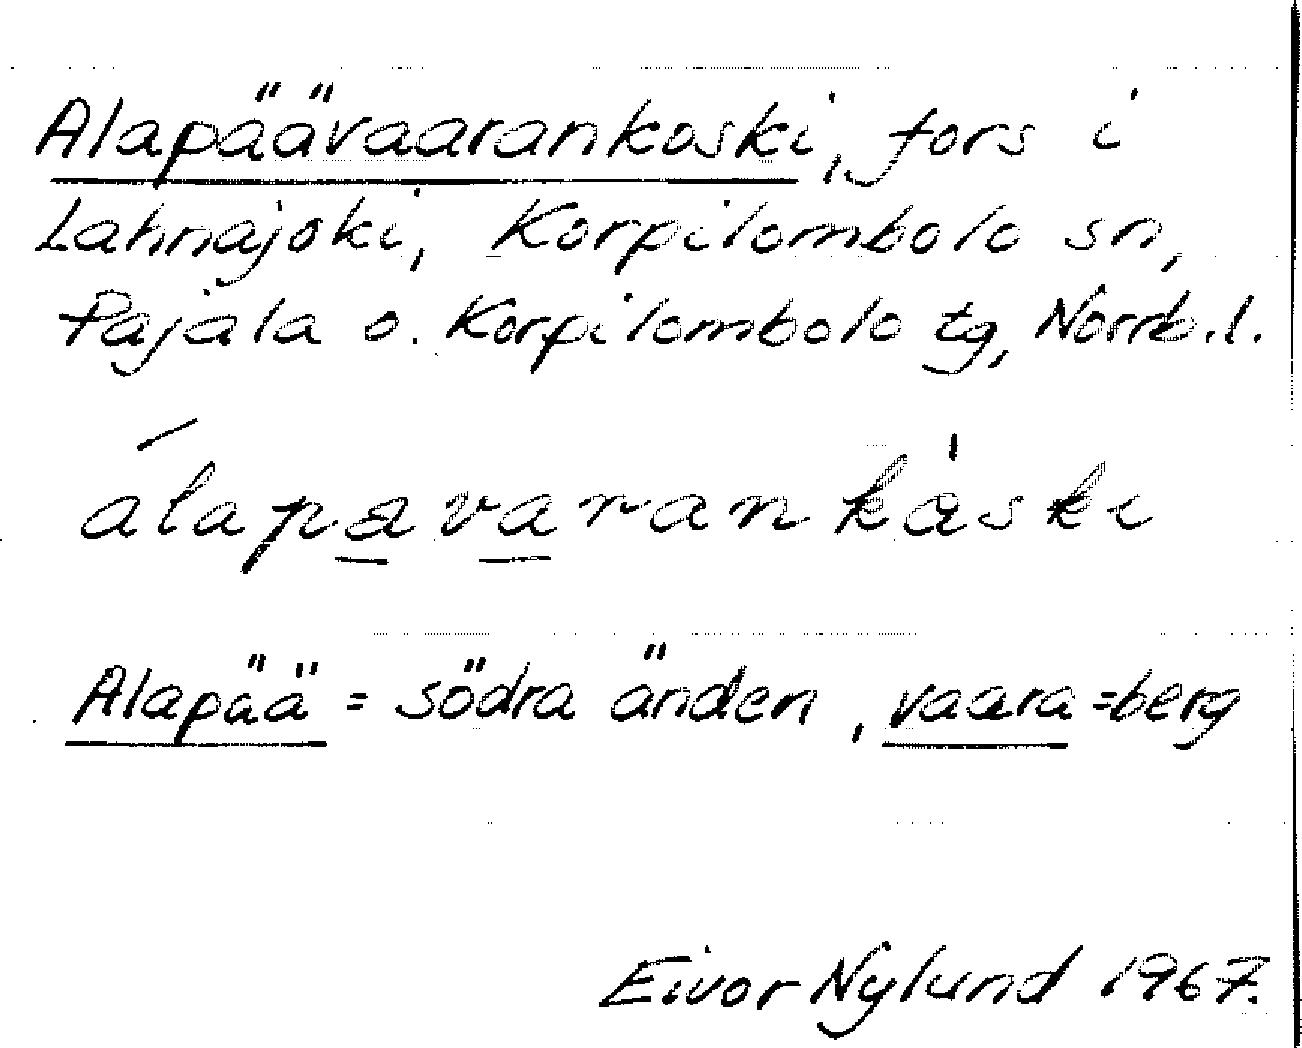 Alapäävaarankoski, fors i
Lahnajoki, Korpilombolo sn,
Pajala o. Korpilombolo tg, Norrb.l.
álapa̱va̱rankåski
Alapää = södra änden, vaara = berg
Eivor Nylund 1967.